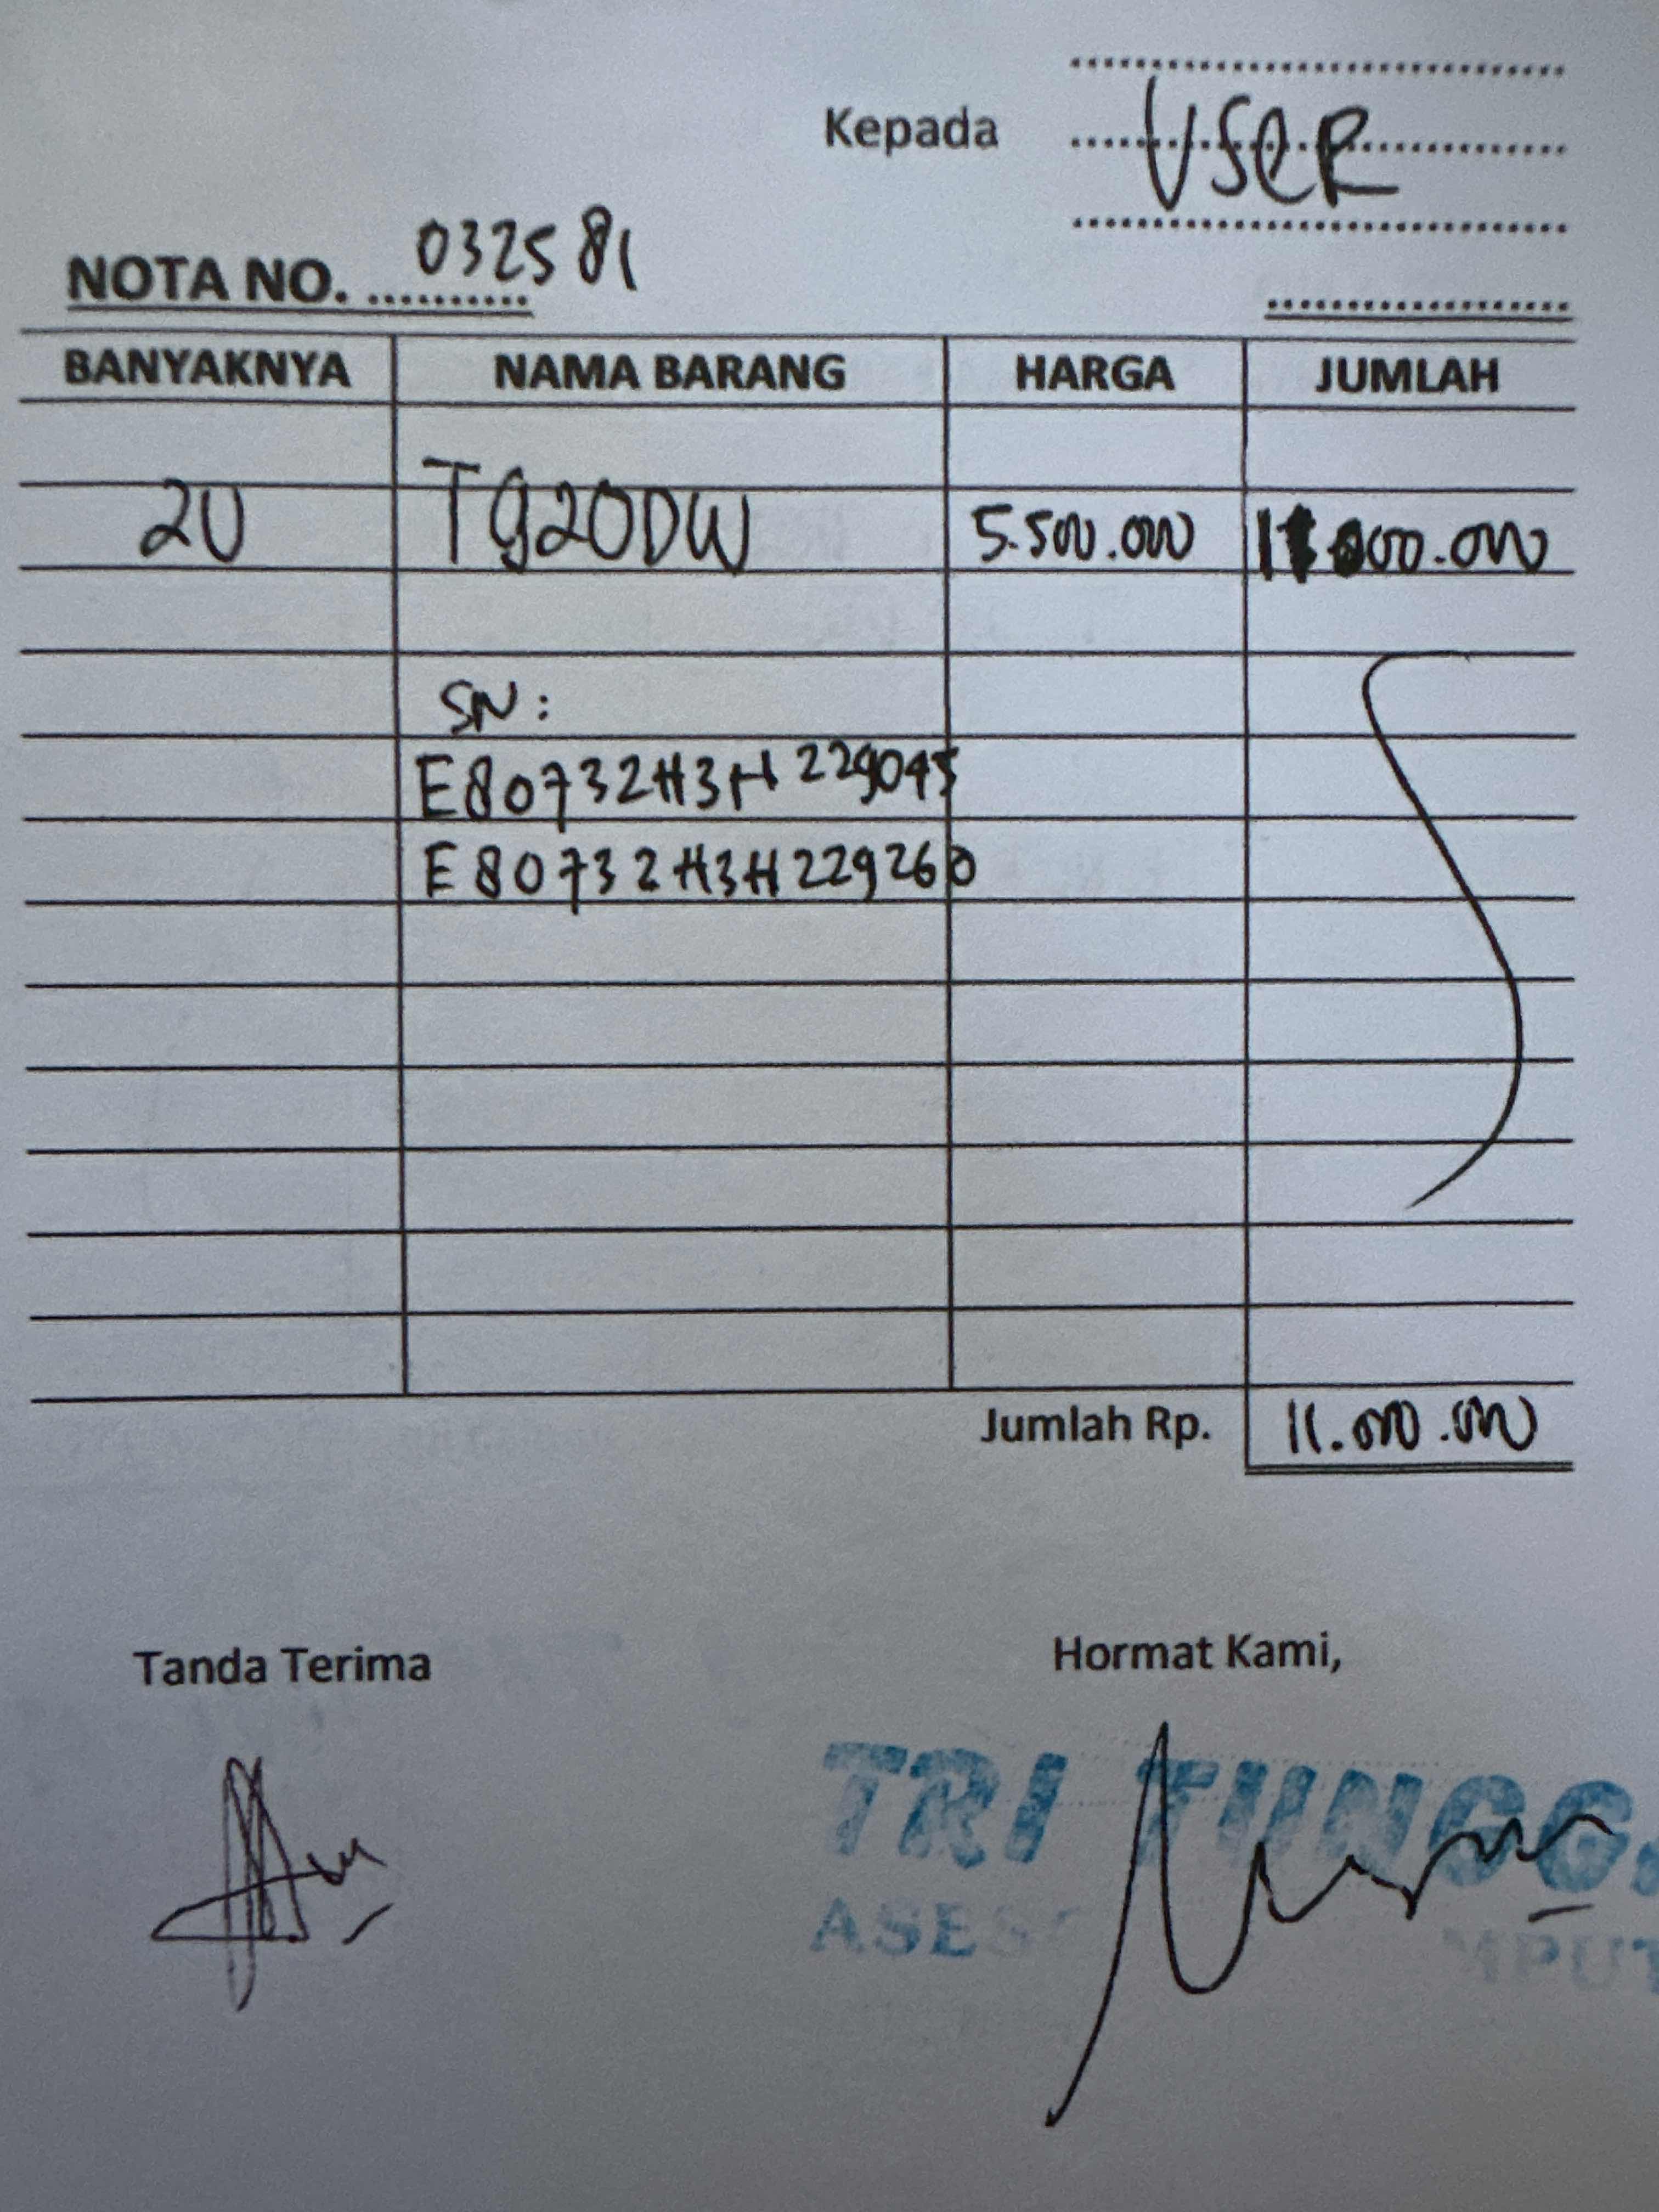 Kepada USER
NOTA NO. 032581
BANYAKNYA NAMA BARANG HARGA JUMLAH
2U T920DW 5.500.000 11.000.000
SN :
E80732H3H229045
E80732H3H229260
Jumlah Rp. 11.000.000
Tanda Terima Hormat Kami,
TRI TUNGG